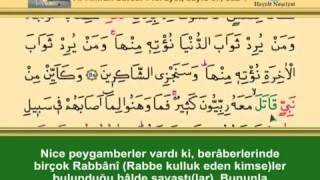 Hayrât Neşriyat
وَمَنْ يُرِدْ ثَوَابَ الدُّنْيَا نُؤْتِهِ مِنْهَاۚ وَمَنْ يُرِدْ ثَوَابَ
الْاٰخِرَةِ نُؤْتِهِ مِنْهَاۜ وَسَنَجْزِي الشَّاكِر۪ينَ ﴿١٤٥﴾ وَكَاَيِّنْ مِنْ
نَبِيٍّ قَاتَلَۙ مَعَهُ رِبِّيُّونَ كَث۪يرٌۚ فَمَا وَهَنُوا لِمَٓا اَصَابَهُمْ ف۪ي سَب۪يلِ
Nice peygamberler vardı ki, berâberlerinde
birçok Rabbânî (Rabbe kulluk eden kimse)ler
bulunduğu hâlde savaştı(lar). Bununla